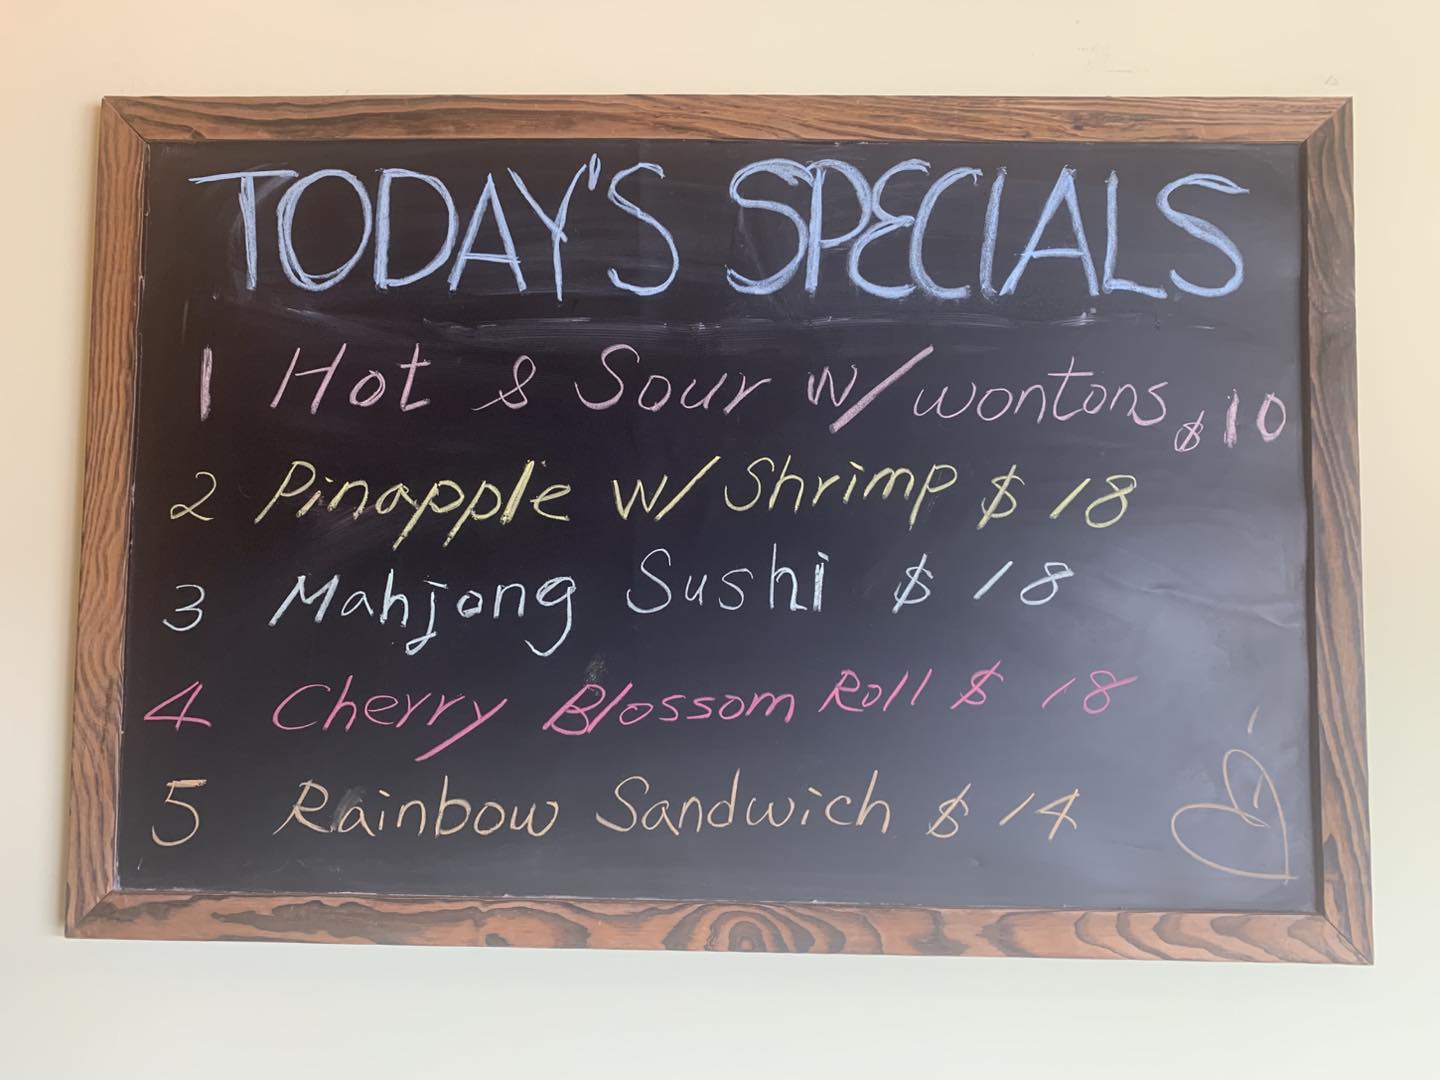 TODAY'S SPECIALS
1 Hot & Sour w/ wontons $10
2 Pinapple w/ Shrimp $18
3 Mahjong Sushi $18
4 Cherry Blossom Roll $18
5 Rainbow Sandwich $14